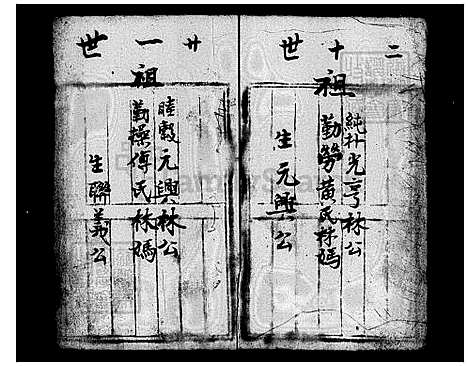 二十世
祖
純朴光亨林公
勤勞黃氏林媽
生元興公
廿一世
祖
睦毅元興林公
勤操傅氏林媽
生聯義公